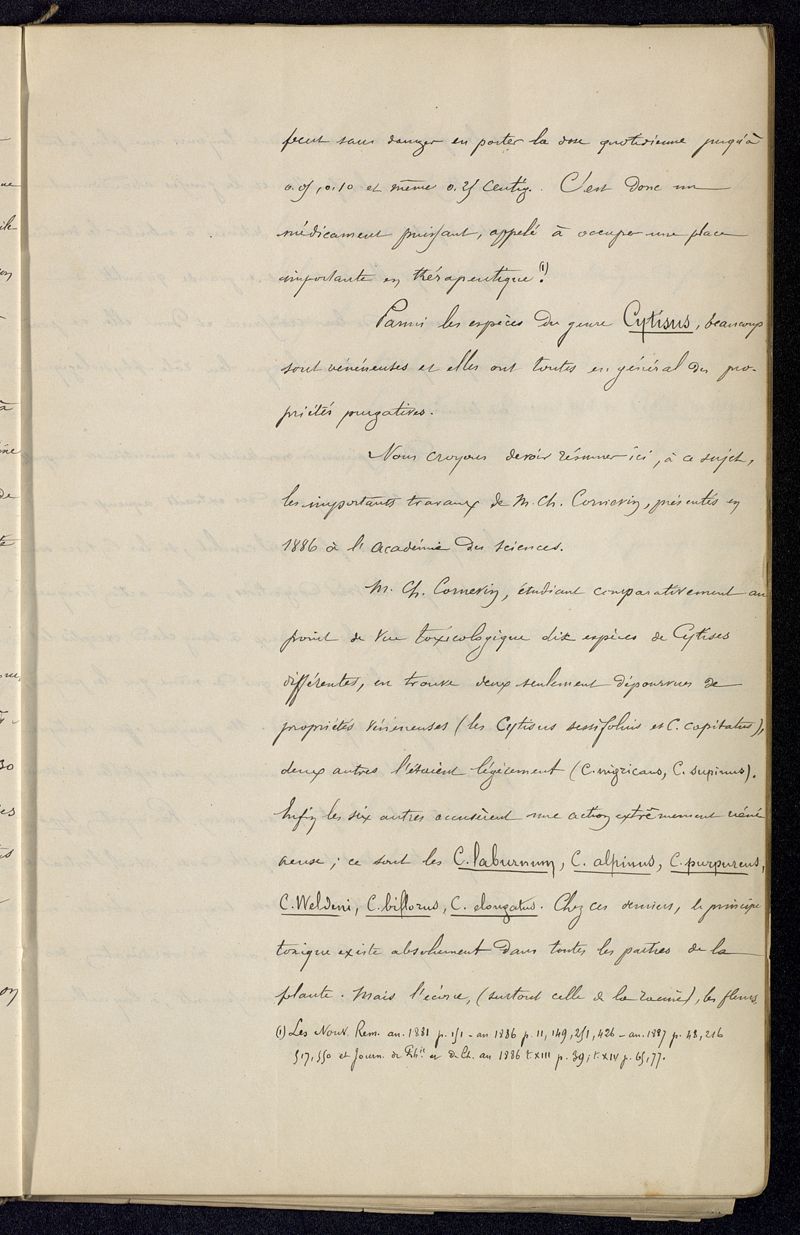 peut sans danger en porter la dose quotidienne jusqu'à
0.05, 0.10 et même 0.25 centig. C'est donc un
médicament puissant, appelé à occuper une place
importante en thérapeutique (1).
Parmi les espèces du genre Cytisus, beaucoup
sont vénéneuses et elles ont toutes en général des pro-
priétés purgatives.
Nous croyons devoir résumer ici, à ce sujet,
les importants travaux de M. Ch. Cornevin, présentés en
1886 à l'Académie des Sciences.
M. Ch. Cornevin, étudiant comparativement au
point de vue toxicologique dix espèces de Cytises
différentes, en trouve deux seulement dépourvues de
propriétés vénéneuses (les Cytisus sessifolius et C. capitatus),
deux autres l'étaient légèrement (C. nigricans, C. supinus).
Enfin les six autres accusèrent une action extrêmement véné
neuse; ce sont les C. laburnum, C. alpinus, C. purpureus,
C. Weldeni, C. biflorus, C. elongatus. Chez ces derniers, le principe
toxique existe absolument dans toutes les parties de la
plante. Mais l'écorce, (surtout celle de la racine), les fleurs
(1) Les Nouv. Rem. an. 1881 p. 151 - an 1886 p. 11, 149, 251, 426 - an. 1887 p. 48, 216
517, 550 et Journ. de Ph.ie et de Ch. an 1886 t. XIII p. 39; t. XIV p. 65, 77.